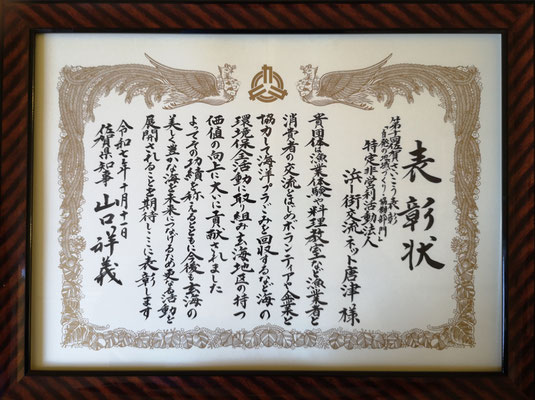 表彰状
特定非営利活動法人
浜-街交流ネット唐津 様
貴団体は漁業体験や料理教室など漁業者と
消費者の交流をはじめボランティアや企業と
協力して海洋プラごみを回収するなど海の
環境保全活動に取り組み玄海地区の持つ
価値の向上に大いに貢献されました
よってその功績を称えるとともに今後も玄海の
美しく豊かな海を未来につなげるため更なる活動を
展開されることを期待しここに表彰します
令和七年十月十二日
佐賀県知事 山口祥義